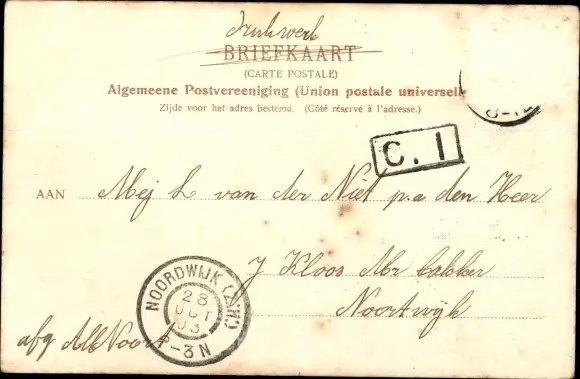 Drukwerk
BRIEFKAART
(CARTE POSTALE)
Algemeene Postvereeniging (Union postale universell
Zijde voor het adres bestemd. (Côté réservé à l'adresse.)
C. 1
AAN Mej L van der Niet p.a den Heer
J Kloos Mr bakker
Noortwijk
NOORDWIJK (Z.H.)
28
OCT
03
-3N
afz